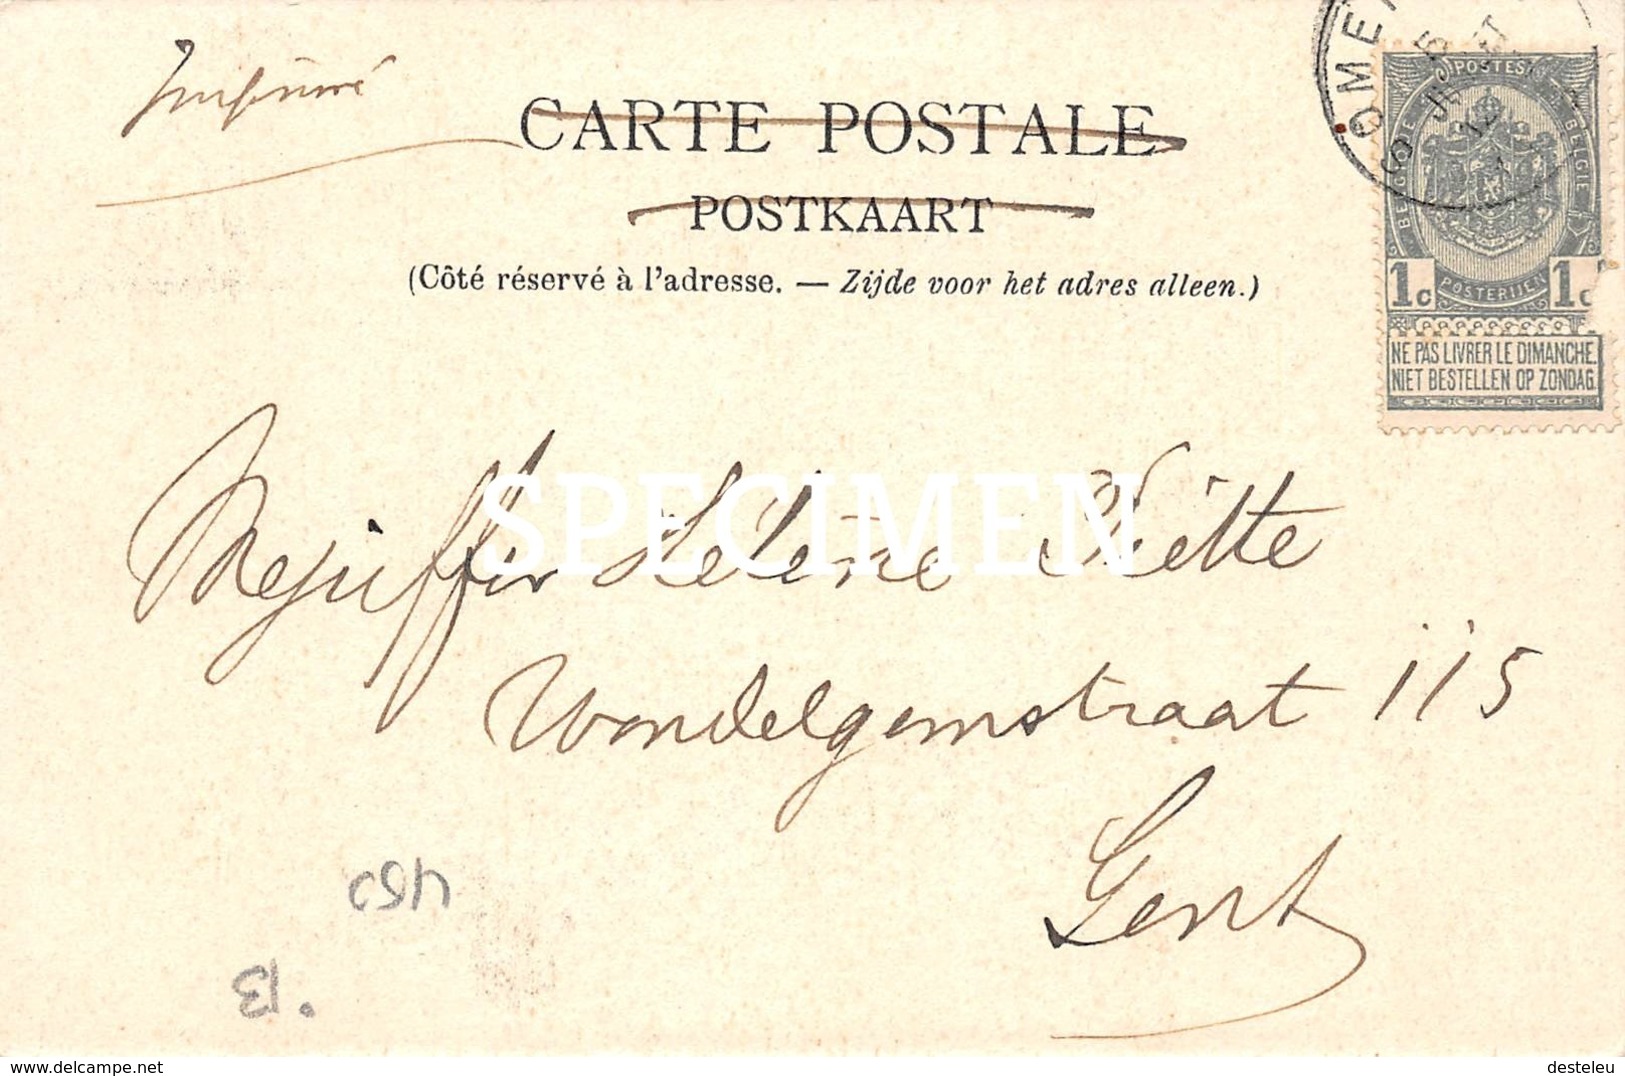 Imprimé
CARTE POSTALE
POSTKAART
(Côté réservé à l'adresse. — Zijde voor het adres alleen.)
POSTES
BELGIQUE
BELGIE
POSTERIJEN
1c 1c
NE PAS LIVRER LE DIMANCHE.
NIET BESTELLEN OP ZONDAG.
SPECIMEN
Mejuffer Hélène
Wondelgemstraat 115
Gent
B.
delcampe.net
desteleu